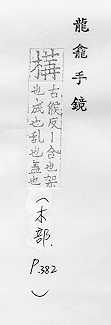 龍龕手鏡
構
古候反｜合也架
也成也乱也盖也
(木部.
P.382
)